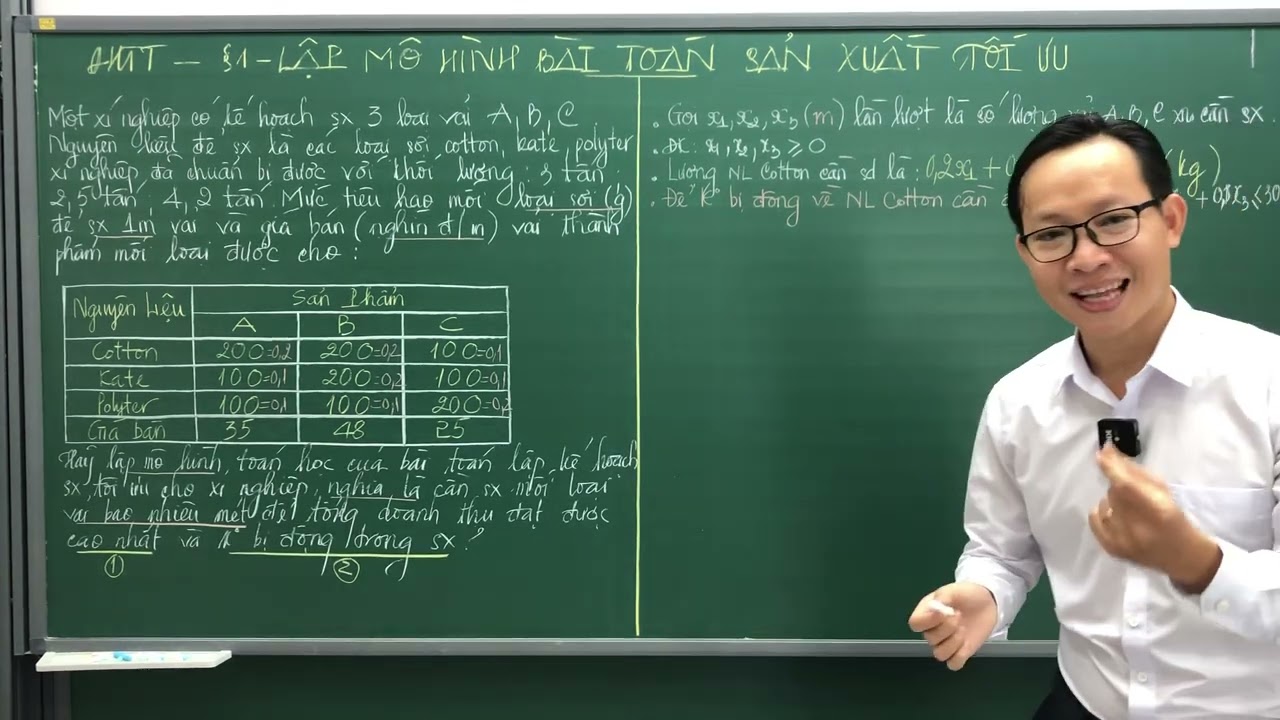 §1 - LẬP MÔ HÌNH BÀI TOÁN SẢN XUẤT TỐI ƯU
Một xí nghiệp có kế hoạch sx 3 loại vải A, B, C.
Nguyên liệu để sx là các loại sợi cotton, kate, polyter
xí nghiệp đã chuẩn bị được với khối lượng: 3 tấn,
2,5 tấn, 4,2 tấn. Mức tiêu hao mỗi loại sợi (g)
để sx 1m vải và giá bán (nghìn đ/m) vải thành
phẩm mỗi loại được cho:
Nguyên Liệu Sản Phẩm
A B C
Cotton 200=0,2 200=0,2 100=0,1
Kate 100=0,1 200=0,2 100=0,1
Polyter 100=0,1 100=0,1 200=0,2
Giá bán 35 48 25
Hãy lập mô hình toán học của bài toán lập kế hoạch
sx tối ưu cho xí nghiệp, nghĩa là cần sx mỗi loại
vải bao nhiêu mét để tổng doanh thu đạt được
cao nhất và k bị động trong sx?
① ②
. Gọi x₁, x₂, x₃ (m) lần lượt là số lượng vải A, B, C xn cần sx.
. ĐK: x₁, x₂, x₃ ≥ 0
. Lượng NL Cotton cần sd là: 0,2x₁ + (kg)
. Để k bị động về NL Cotton cần